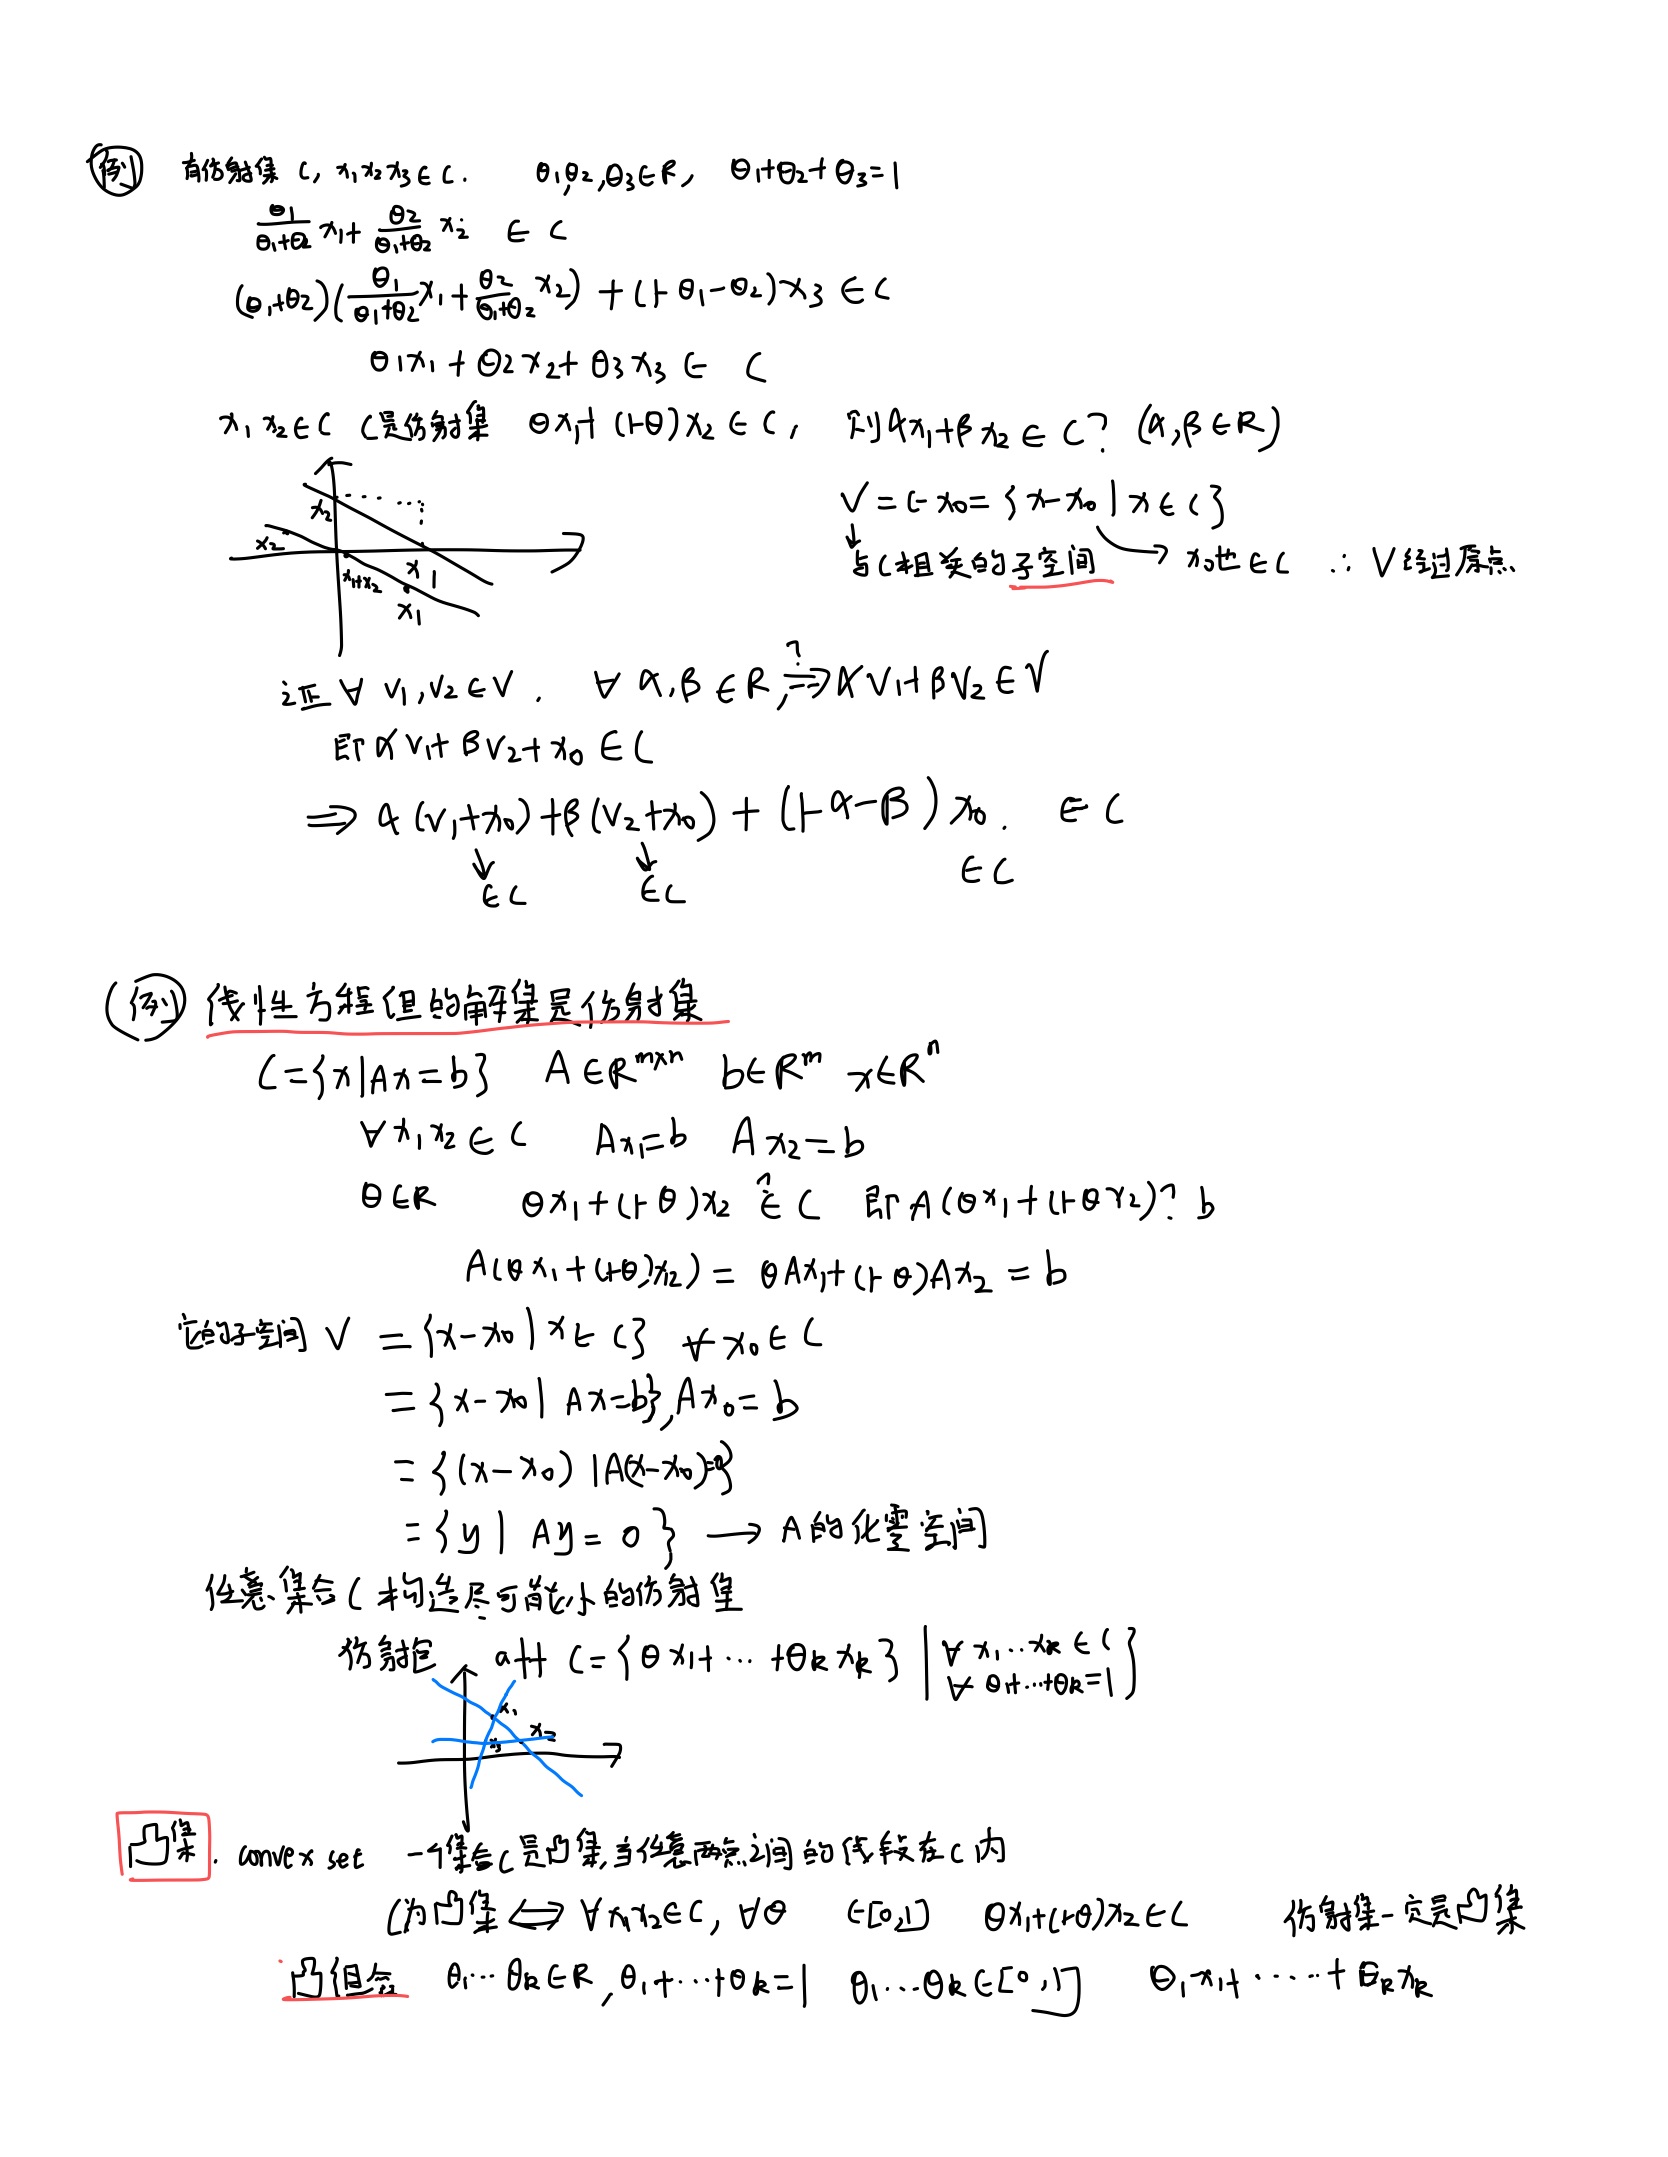 例 有仿射集 C, x₁x₂x₃∈C. θ₁,θ₂,θ₃∈R, θ₁+θ₂+θ₃=1
θ₁/(θ₁+θ₂) x₁+ θ₂/(θ₁+θ₂) x₂ ∈ C
(θ₁+θ₂)(θ₁/(θ₁+θ₂) x₁+ θ₂/(θ₁+θ₂) x₂) + (1-θ₁-θ₂)x₃ ∈C
θ₁x₁ + θ₂x₂+ θ₃x₃ ∈ C
x₁ x₂∈C C是仿射集 θx₁+ (1-θ)x₂ ∈ C, 则αx₁+βx₂∈ C? (α,β∈R)
V = C-x₀= {x-x₀ | x∈C}
↓与C相关的子空间 → x₀也∈C ∴ V经过原点
x₂
x₂
x₁+x₂
x₁
x₁
证 ∀ v₁,v₂∈V. ∀ α,β∈R, ?⇒ αv₁+βv₂∈V
即αv₁+βv₂+x₀∈C
⇒ α(v₁+x₀)+β(v₂+x₀) + (1-α-β)x₀. ∈ C
↓∈C ↓∈C ∈C
例 线性方程组的解集是仿射集
C={x|Ax=b} A∈Rᵐˣⁿ b∈Rᵐ x∈Rⁿ
∀x₁x₂∈C Ax₁=b Ax₂=b
θ∈R θx₁+(1-θ)x₂ ?∈ C 即A(θx₁+(1-θx₂)? b
A(θx₁+(1-θ)x₂) = θAx₁+(1-θ)Ax₂ = b
它的子空间 V = {x-x₀ | x∈C} ∀x₀∈C
= {x-x₀ | Ax=b}, Ax₀=b
= {(x-x₀) |A(x-x₀)=0}
= {y | Ay= 0} → A的化零空间
任意集合C 构造尽可能小的仿射集
仿射包 aff C={θx₁+⋯+θₖxₖ} | ∀ x₁⋯xₖ∈C
∀ θ₁+⋯+θₖ=1}
x₁
x₂
x₃
凸集. convex set 一个集合C是凸集,当任意两点之间的线段在C内
C为凸集⇔∀x₁x₂∈C, ∀θ ∈[0,1] θx₁+(1-θ)x₂∈C 仿射集一定是凸集
凸组合 θ₁⋯θₖ∈R,θ₁+⋯+θₖ=1 θ₁⋯θₖ∈[0,1] θ₁x₁+⋯⋯+θₖxₖ